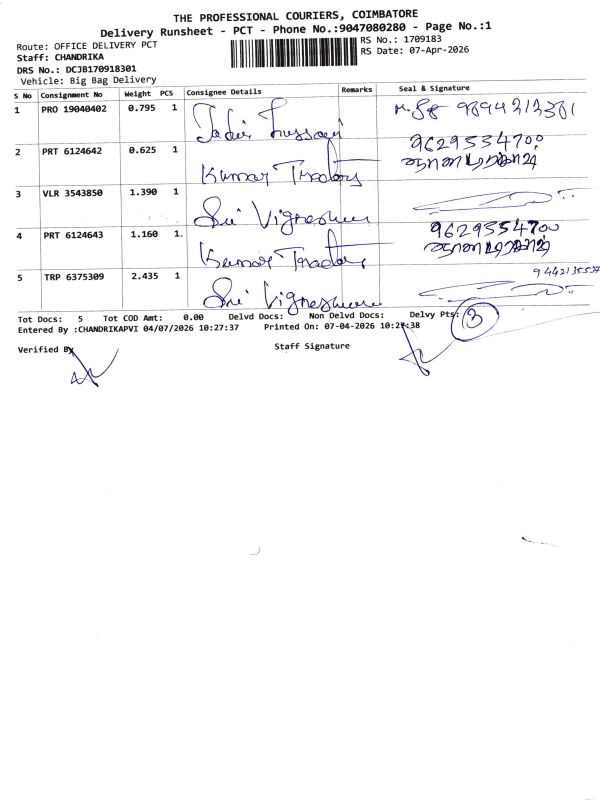 THE PROFESSIONAL COURIERS, COIMBATORE
Delivery Runsheet - PCT - Phone No.:9047080280 - Page No.:1
Route: OFFICE DELIVERY PCT
RS No.: 1709183
Staff: CHANDRIKA
RS Date: 07-Apr-2026
DRS No.: DCJB170918301
Vehicle: Big Bag Delivery
S No Consignment No Weight PCS Consignee Details Remarks Seal & Signature
1 PRO 19040402 0.795 1 Hussain 9894212381
2 PRT 6124642 0.625 1 Kumar Trading 9629554700
3 VLR 3543850 1.390 1 Sri Vignesh
4 PRT 6124643 1.160 1 Kumar Trading 9629554700
5 TRP 6375309 2.435 1 Sri Vigneshwara
Tot Docs: 5 Tot COD Amt: 0.00 Delvd Docs: Non Delvd Docs: Delvy Pts: 3
Entered By :CHANDRIKAPVI 04/07/2026 10:27:37 Printed On: 07-04-2026 10:27:38
Verified By Staff Signature